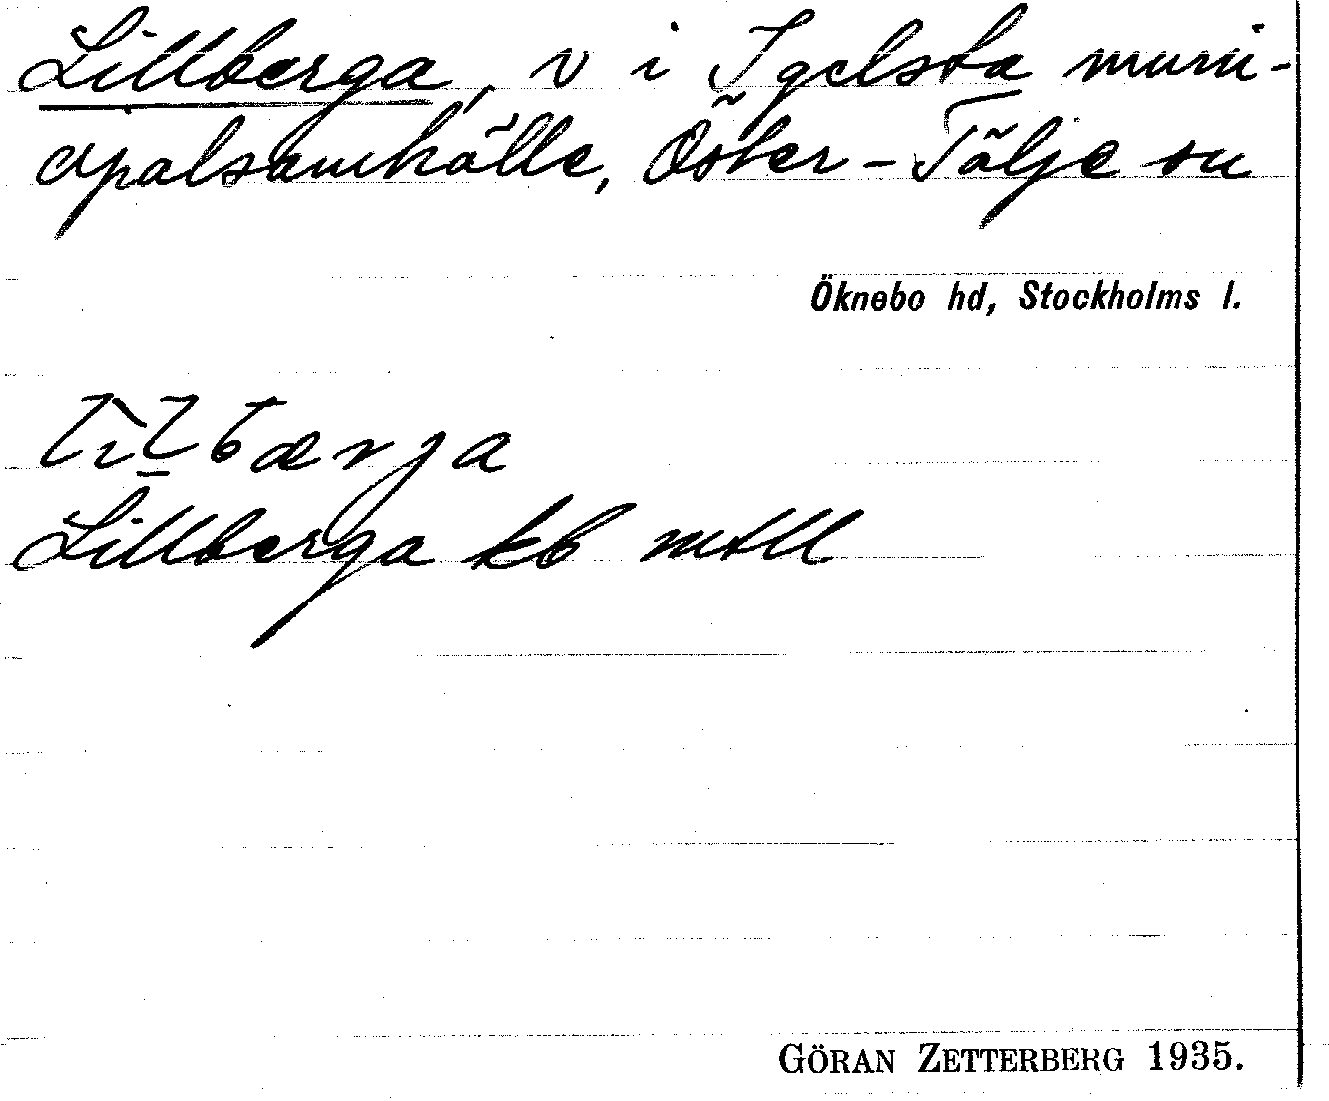 Lillberga, v i Igelsta muni-
cipalsamhälle, Öster-Tälje sn
Öknebo hd, Stockholms l.
Lillberga kb mtll
GÖRAN ZETTERBERG 1935.